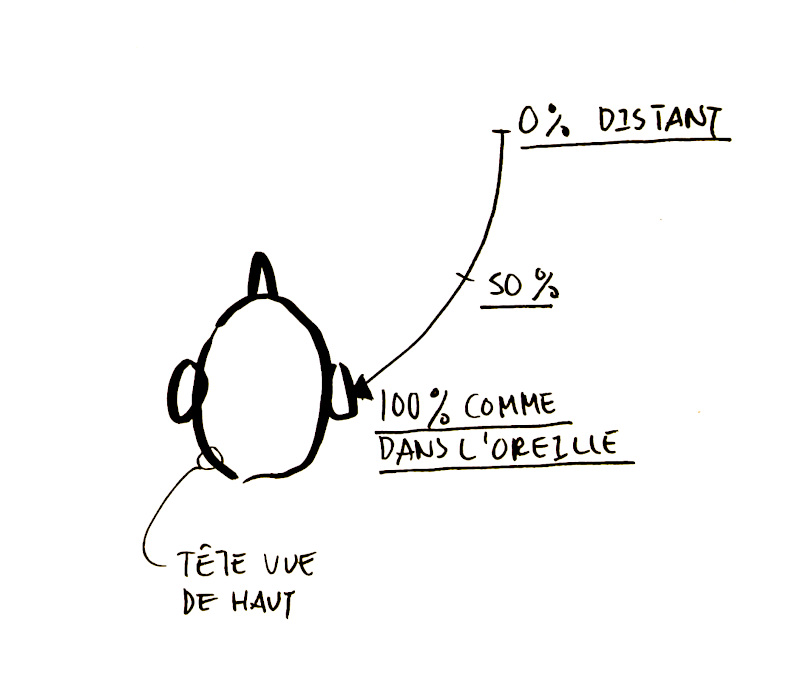 0% DISTANT
50%
100% COMME
DANS L'OREILLE
TÊTE VUE
DE HAUT